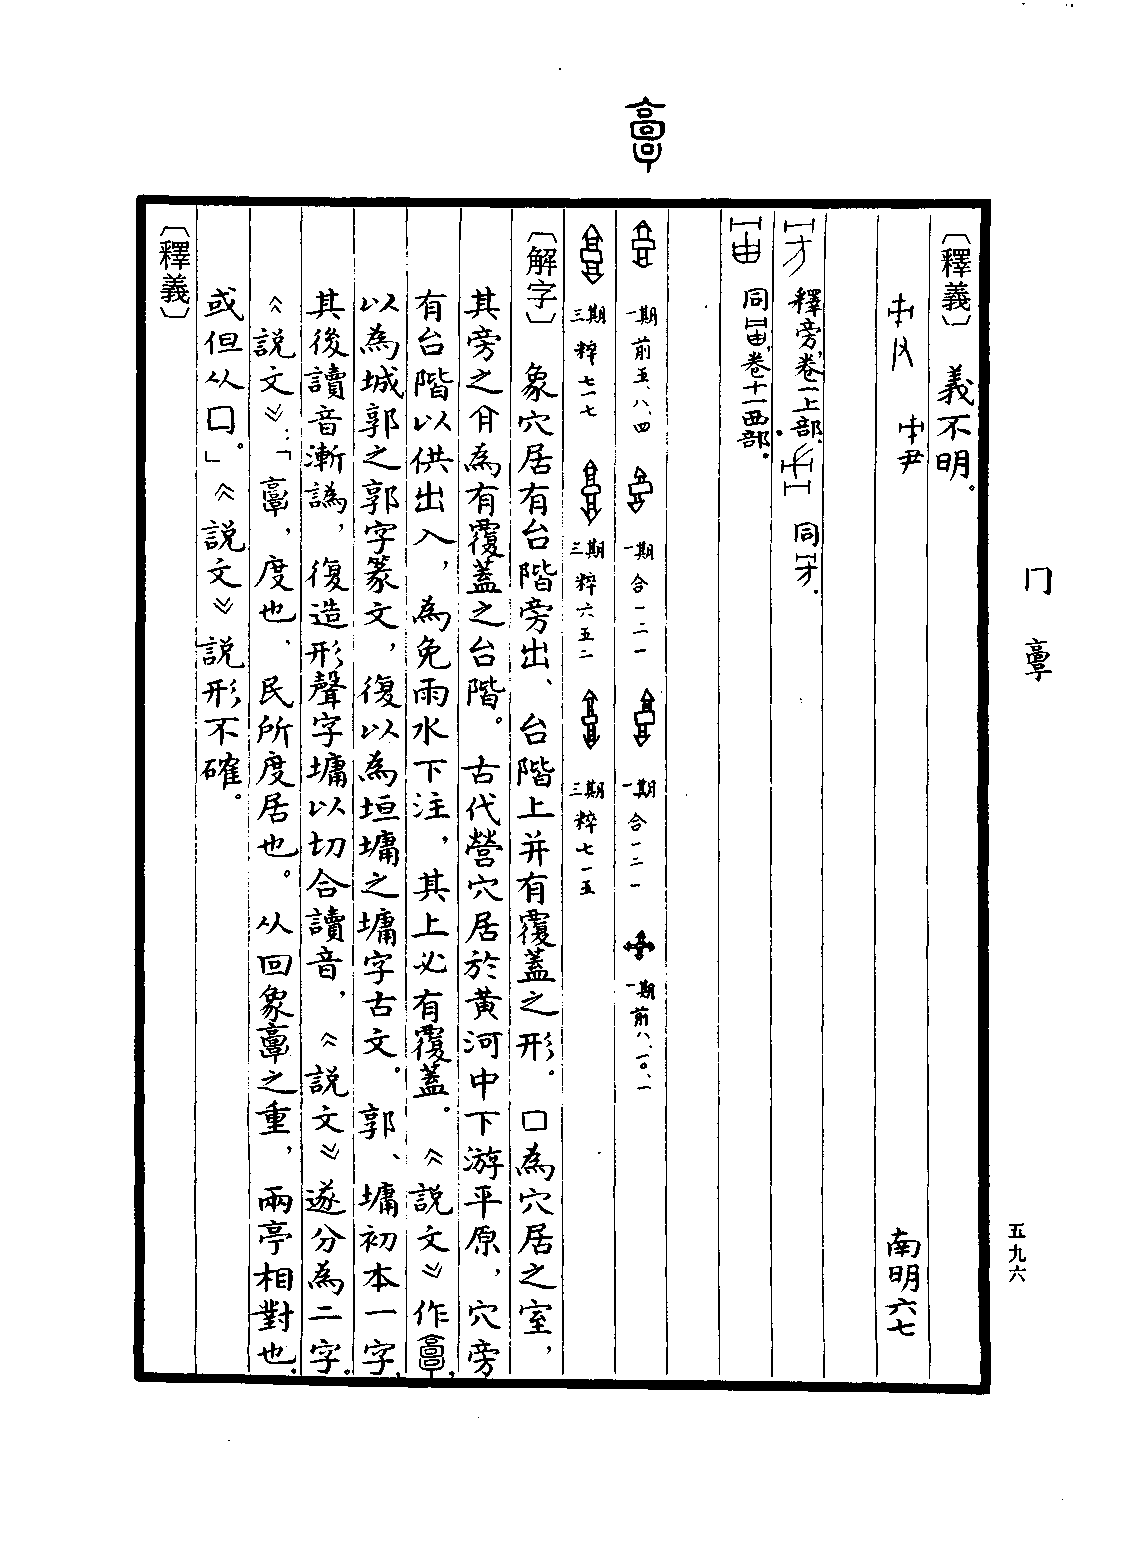 𩫏
冂 𩫏
五九六
〔釋義〕 義不明。
南明六七
釋旁，卷一上部。 同
同 卷十一西部。
一期前五、八、四 一期合一二一 一期合一二一 一期前八、一〇、一
三期粹七一七 三期粹六五二 三期粹七一五
〔解字〕 象穴居有台階旁出、台階上并有覆蓋之形。口為穴居之室，
其旁之 為有覆蓋之台階。古代營穴居於黃河中下游平原，穴旁
有台階以供出入，為免雨水下注，其上必有覆蓋。《說文》作𩫏，
以為城郭之郭字篆文，復以為垣墉之墉字古文。郭、墉初本一字，
其後讀音漸譌，復造形聲字墉以切合讀音，《說文》遂分為二字。
《說文》：「𩫏，度也、民所度居也。从回象𩫏之重，兩亭相對也。
或但从口。」《說文》說形不確。
〔釋義〕